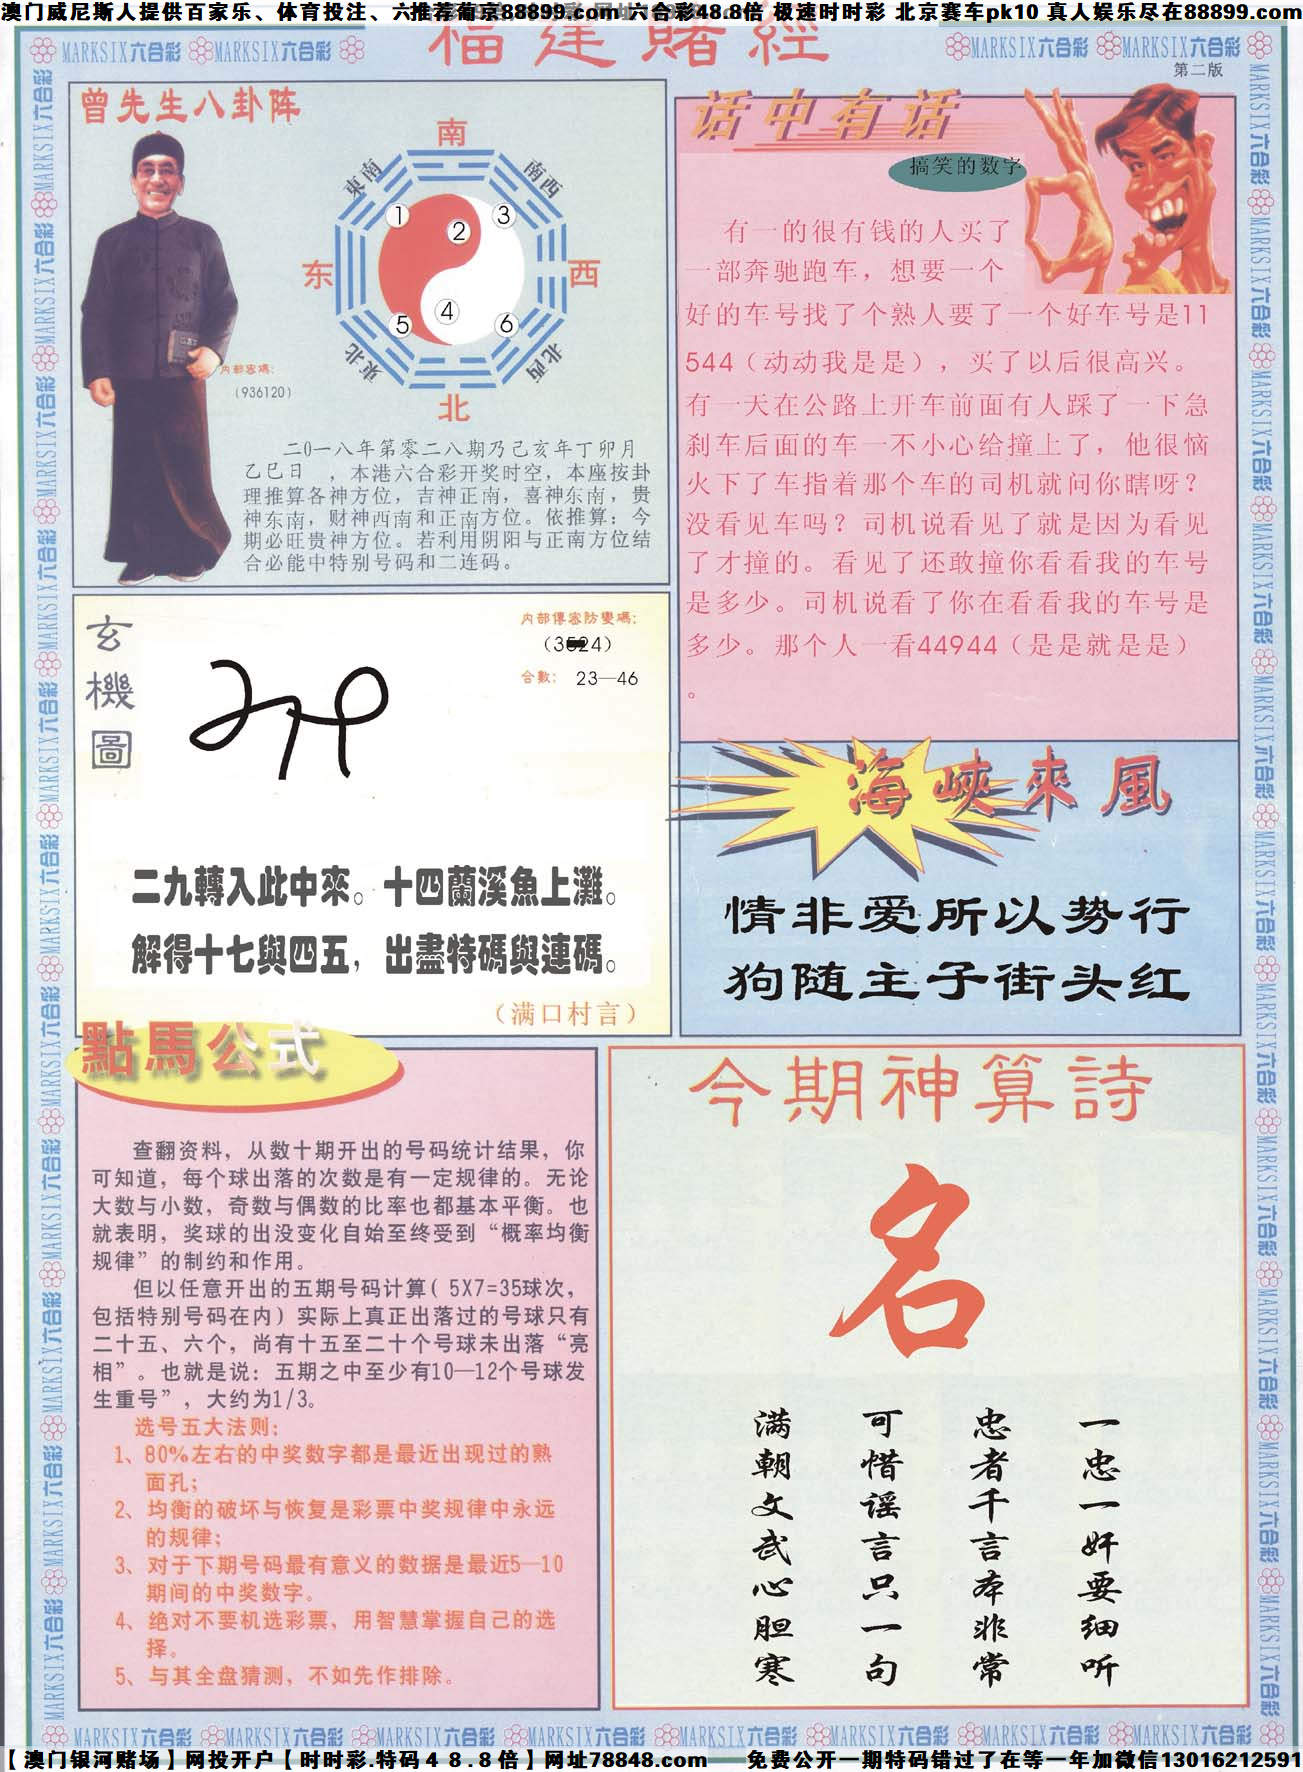 澳门威尼斯人提供百家乐、体育投注、六推荐葡京88899.com 六合彩48.8倍 极速时时彩 北京赛车pk10 真人娱乐尽在88899.com
福建賭經
MARKSIX六合彩 MARKSIX六合彩 MARKSIX六合彩 MARKSIX六合彩
第二版
曾先生八卦阵
南
東南
南西
1
2
3
东
西
4
5
6
東北
北西
北
内部密碼:
(936120)
二0一八年第零二八期乃己亥年丁卯月
乙巳日 ，本港六合彩开奖时空，本座按卦
理推算各神方位，吉神正南，喜神东南，贵
神东南，财神西南和正南方位。依推算：今
期必旺贵神方位。若利用阴阳与正南方位结
合必能中特别号码和二连码。
话中有话
搞笑的数字
有一的很有钱的人买了
一部奔驰跑车，想要一个
好的车号找了个熟人要了一个好车号是11
544（动动我是是），买了以后很高兴。
有一天在公路上开车前面有人踩了一下急
刹车后面的车一不小心给撞上了，他很恼
火下了车指着那个车的司机就问你瞎呀？
没看见车吗？司机说看见了就是因为看见
了才撞的。看见了还敢撞你看看我的车号
是多少。司机说看了你在看看我的车号是
多少。那个人一看44944（是是就是是）
。
玄機圖
内部傳密防變碼:
合數: 23—46
二九轉入此中來。十四蘭溪魚上灘。
解得十七與四五，出盡特碼與連碼。
（满口村言）
海峽來風
情非爱所以势行
狗随主子街头红
點馬公式
查翻资料，从数十期开出的号码统计结果，你
可知道，每个球出落的次数是有一定规律的。无论
大数与小数，奇数与偶数的比率也都基本平衡。也
就表明，奖球的出没变化自始至终受到“概率均衡
规律”的制约和作用。
但以任意开出的五期号码计算( 5X7=35球次，
包括特别号码在内）实际上真正出落过的号球只有
二十五、六个，尚有十五至二十个号球未出落“亮
相”。也就是说：五期之中至少有10—12个号球发
生重号”，大约为1/3。
选号五大法则：
1、80%左右的中奖数字都是最近出现过的熟
面孔；
2、均衡的破坏与恢复是彩票中奖规律中永远
的规律；
3、对于下期号码最有意义的数据是最近5—10
期间的中奖数字。
4、绝对不要机选彩票，用智慧掌握自己的选
择。
5、与其全盘猜测，不如先作排除。
今期神算詩
名
一忠一奸要细听
忠者千言本非常
可惜谣言只一句
满朝文武心胆寒
MARKSIX六合彩 MARKSIX六合彩 MARKSIX六合彩 MARKSIX六合彩 MARKSIX六合彩 MARKSIX六合彩 MARKSIX六合彩 MARKSIX六合彩
【澳门银河赌场】网投开户【时时彩.特码48.8倍】网址78848.com 免费公开一期特码错过了在等一年加微信13016212591